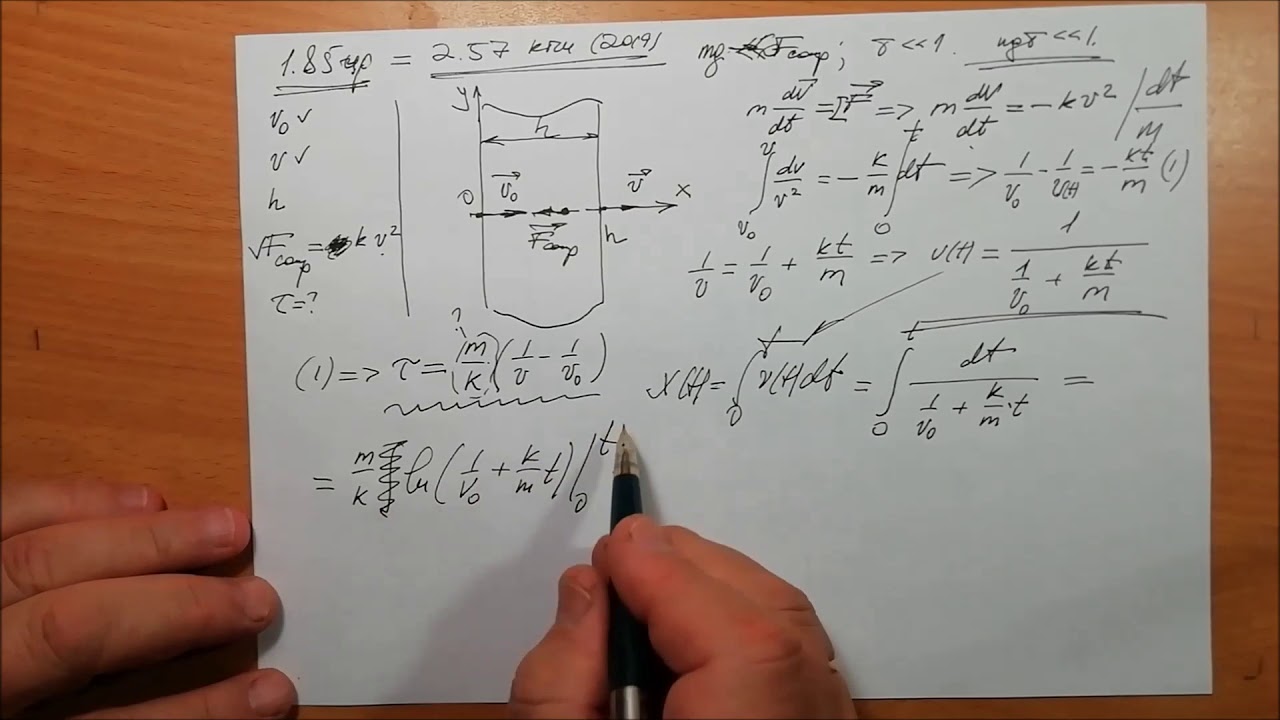 1.85 = 2.57 (2019) mg << F_сопр; τ << 1. mgτ << 1.
v₀ ✓
v ✓
h
√F_сопр = k v²
τ = ?
y
h
0 v⃗₀ v⃗ x
F⃗_сопр h
m dv⃗/dt = ΣF⃗ => m dv/dt = -kv² | dt/m
∫_{v₀}^{v} dv/v² = - k/m ∫_0^t dt => 1/v₀ - 1/v(t) = - kt/m (1)
1/v = 1/v₀ + kt/m => v(t) = 1/(1/v₀ + kt/m)
?
(1) => τ = (m/k)(1/v - 1/v₀)
x(t) = ∫_0^t v(t)dt = ∫_0^t dt/(1/v₀ + k/m·t) =
= m/k ln(1/v₀ + k/m t)|_0^t